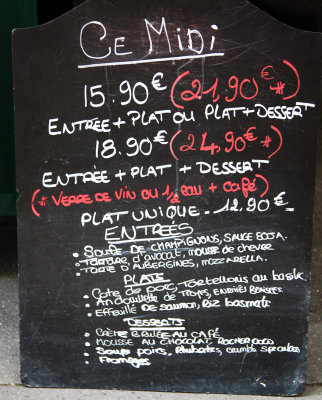 CE MIDI
15.90€ (21,90€*)
ENTRÉE + PLAT OU PLAT + DESSERT
18.90€ (24,90€*)
ENTRÉE + PLAT + DESSERT
(* VERRE DE VIN OU 1/2 EAU + CAFÉ)
PLAT UNIQUE - 12,90€
ENTRÉES
• DE CHAMPIGNONS, SAUCE SOJA.
• TARTARE d'AVOCAT, MOUSSE de chèvre
• TARTE d'AUBERGINES, MOZZARELLA.
PLATS
• Côte de porc, Tortellonis au basilic
• Andouillette de Troyes,
• Effeuillé de saumon, Riz basmati
DESSERTS
• CRÈME BRULÉE AU CAFÉ
• MOUSSE AU CHOCOLAT, ROCHER COCO
• Soupe poires, Rhubarbe, crumble speculoos
• Fromages